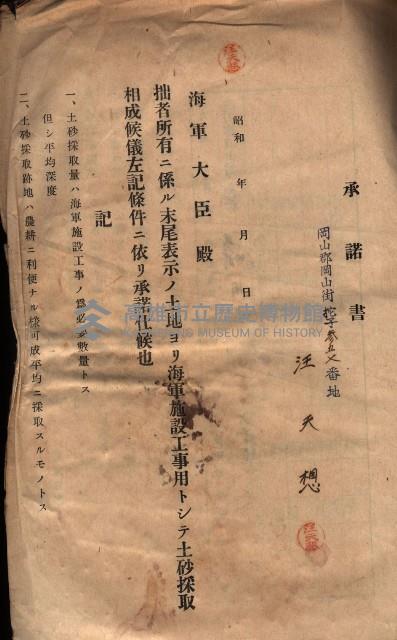 承諾書
岡山郡岡山街
番地
汪天想
昭和 年 月 日
海軍大臣殿
拙者所有ニ係ル末尾表示ノ土地ヨリ海軍施設工事用トシテ土砂採取
相成候儀左記條件ニ依リ承諾仕候也
記
一、土砂採取量ハ海軍施設工事ノ為必要數量トス
但シ平均深度
二、土砂採取跡地ハ農耕ニ利便ナル様可成平均ニ採取スルモノトス
高雄市立歷史博物館
KAOHSIUNG MUSEUM OF HISTORY